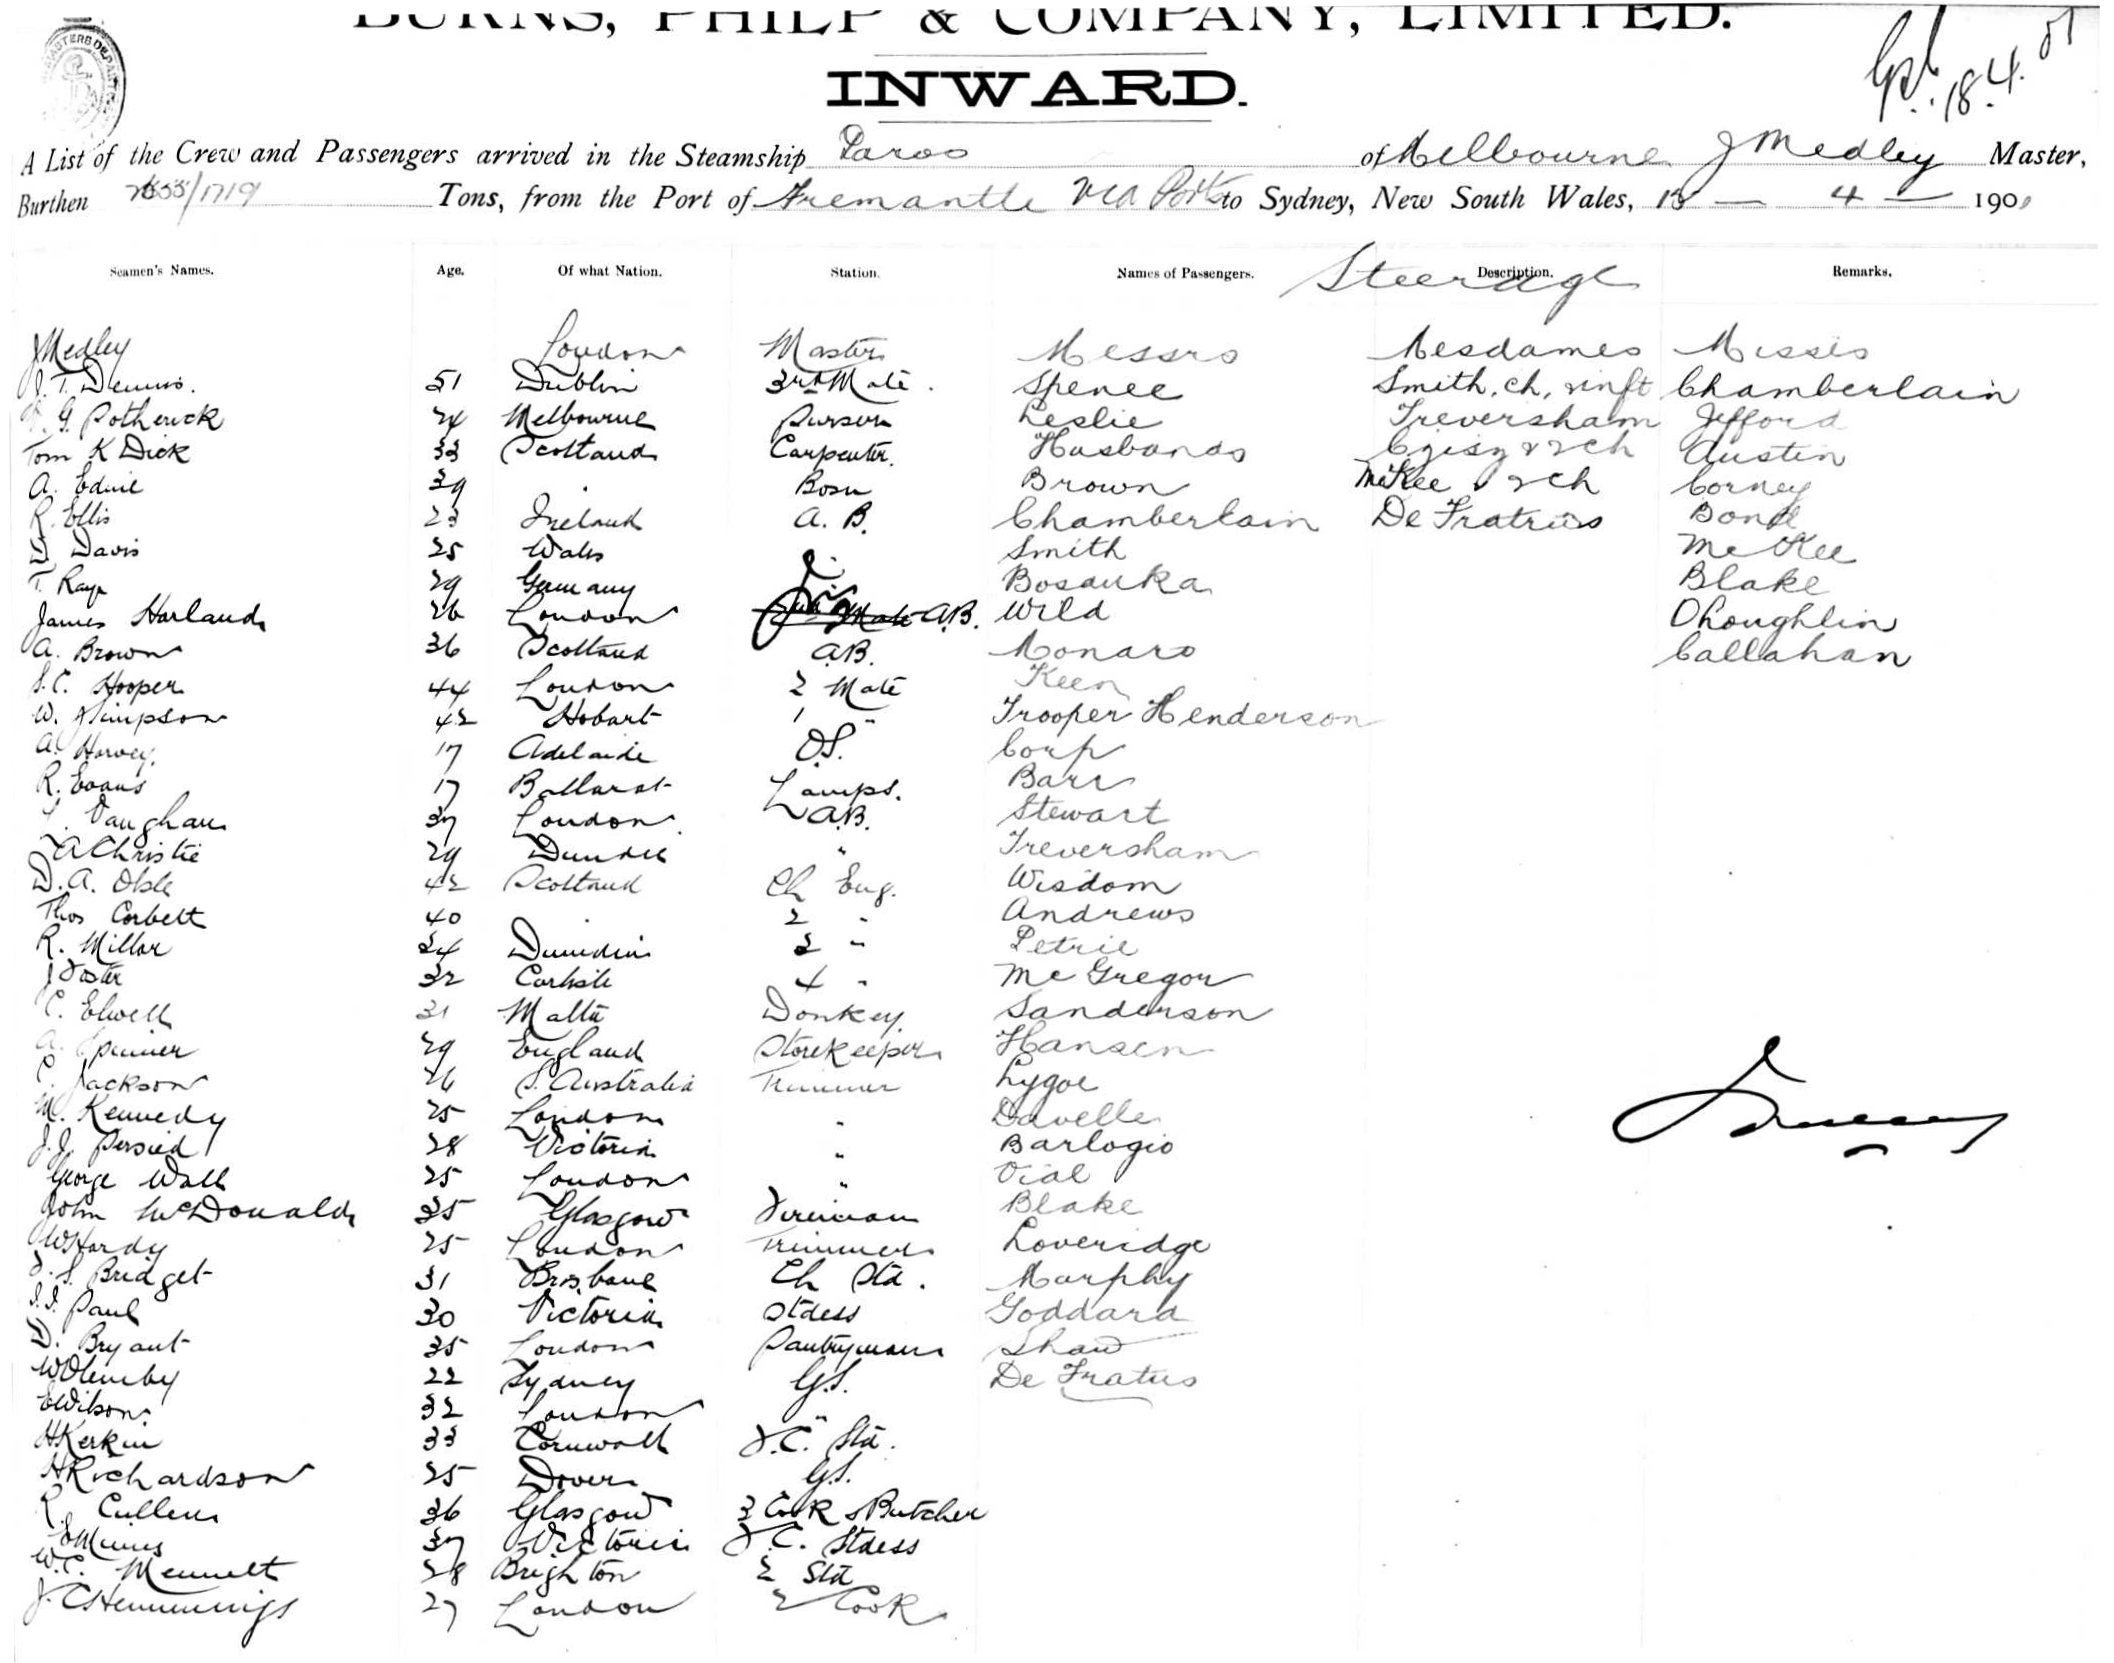 BURNS, PHILP & COMPANY, LIMITED.
INWARD.
18.4.01
A List of the Crew and Passengers arrived in the Steamship Paroo of Melbourne J Medley Master,
Burthen /1719 Tons, from the Port of Fremantle via Ports to Sydney, New South Wales, 4 190
Seamen's Names. Age. Of what Nation. Station. Names of Passengers. Steerage Description. Remarks.
J Medley London Master Messrs Mesdames Misses
J. T. Dennis. 51 Dublin 3rd Mate. Spence Smith, ch, & inft Chamberlain
G. Potherick 24 Melbourne Purser Leslie Treversham Jefford
Tom K Dick 33 Scotland Carpenter. Husbands & 2 ch Austin
A. Edine 39 " Bosn Brown McKee & 2 ch Corney
R. Ellis 23 Ireland A. B. Chamberlain De Fratrius Bond
D. Davis 25 Wales Smith McKee
T. Raye 29 Germany Bosauka Blake
James Harland 26 London A.B. Wild OLoughlin
A. Brown 36 Scotland A.B. Monaro Callahan
S. C. Hooper 44 London 2 Mate Keen
W. Simpson 42 Hobart 1 " Trooper Henderson
A. Harvey. 17 Adelaide O.S. Corp
R. Evans 17 Ballarat Lamps. Barr
Vaughan 37 London. A.B. Stewart
A Christie 29 Dundee " Treversham
D. A. 42 Scotland Ch Eng. Wisdom
Thos Corbett 40 " 2 " Andrews
R. Millar 24 Dunedin 3 " Petrie
J Foster 32 Carlisle 4 " McGregor
C. Elwell 31 Malta Donkey. Sanderson
A. Spinner 29 England Storekeeper Hansen
C. Jackson 26 S. Australia Trimmer Lygoe
M. Kennedy 25 London " Davelle
J. J. Persied 28 Victoria " Barlogio
George Wall 25 London " Vial
John McDonald 35 Glasgow Fireman Blake
W Hardy 25 London Trimmer Loveridge
S. Bridget 31 Brisbane Ch Std. Murphy
Paul 30 Victoria Stdess Goddard
D. Bryant 35 London Pantryman Shaw
22 Sydney G.S. De Fratus
E Wilson. 32 London "
H Kerkin 33 Cornwall F.C. Std.
H Richardson 25 Dover G.S.
R. Cullen 36 Glasgow 3 Cook & Butcher
37 Victoria F.C. Stdess
W. C. Mennett 28 Brighton 2 Std
J. C Hemmings 27 London 2 Cook